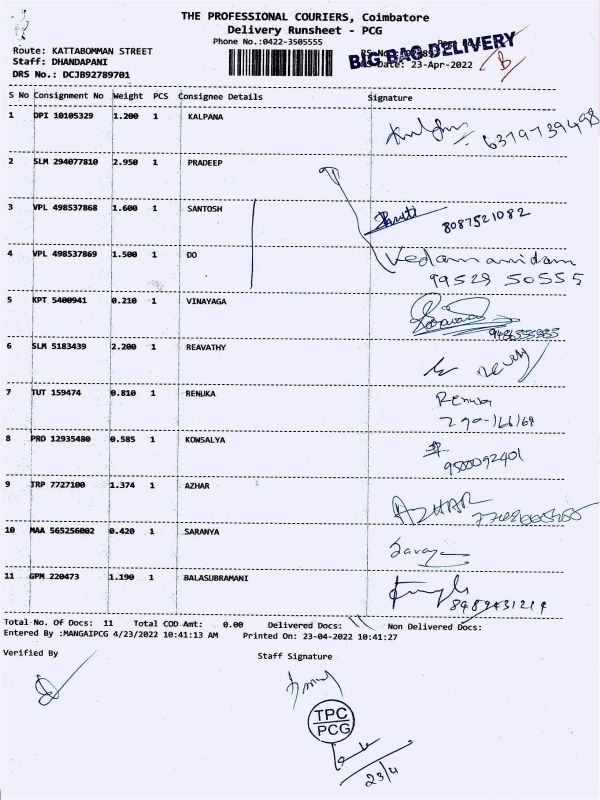 THE PROFESSIONAL COURIERS, Coimbatore
Delivery Runsheet - PCG
Phone No.:0422-3505555
BIG BAG DELIVERY
Route: KATTABOMMAN STREET
Staff: DHANDAPANI
Date: 23-Apr-2022
B
DRS No.: DCJB92789701
S No Consignment No Weight PCS Consignee Details Signature
1 DPI 10105329 1.200 1 KALPANA
2 SLM 294077810 2.950 1 PRADEEP
3 VPL 498537868 1.600 1 SANTOSH
8087521082
4 VPL 498537869 1.500 1 DO
99529 50555
5 KPT 5400941 0.210 1 VINAYAGA
6 SLM 5183439 2.200 1 REAVATHY
7 TUT 159474 0.810 1 RENUKA
8 PRD 12935480 0.585 1 KOWSALYA
9500092401
9 TRP 7727100 1.374 1 AZHAR AZHAR
10 MAA 565256002 0.420 1 SARANYA
11 GPM 220473 1.190 1 BALASUBRAMANI
Total No. Of Docs: 11 Total COD Amt: 0.00 Delivered Docs: 11 Non Delivered Docs:
Entered By :MANGAIPCG 4/23/2022 10:41:13 AM Printed On: 23-04-2022 10:41:27
Verified By Staff Signature
TPC
PCG
23/4